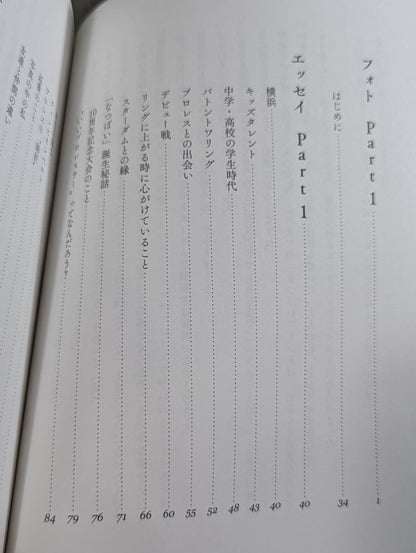 フォト Part 1 1
はじめに 34
エッセイ Part 1 40
横浜 40
キッズタレント 43
中学・高校の学生時代 48
バトントワリング 52
プロレスとの出会い 55
デビュー戦 60
リングに上がる時に心がけていること 66
スターダムとの縁 71
「なつぽい」誕生秘話 76
10周年記念大会のこと 79
いいプロレスラーってなんだろう? 84